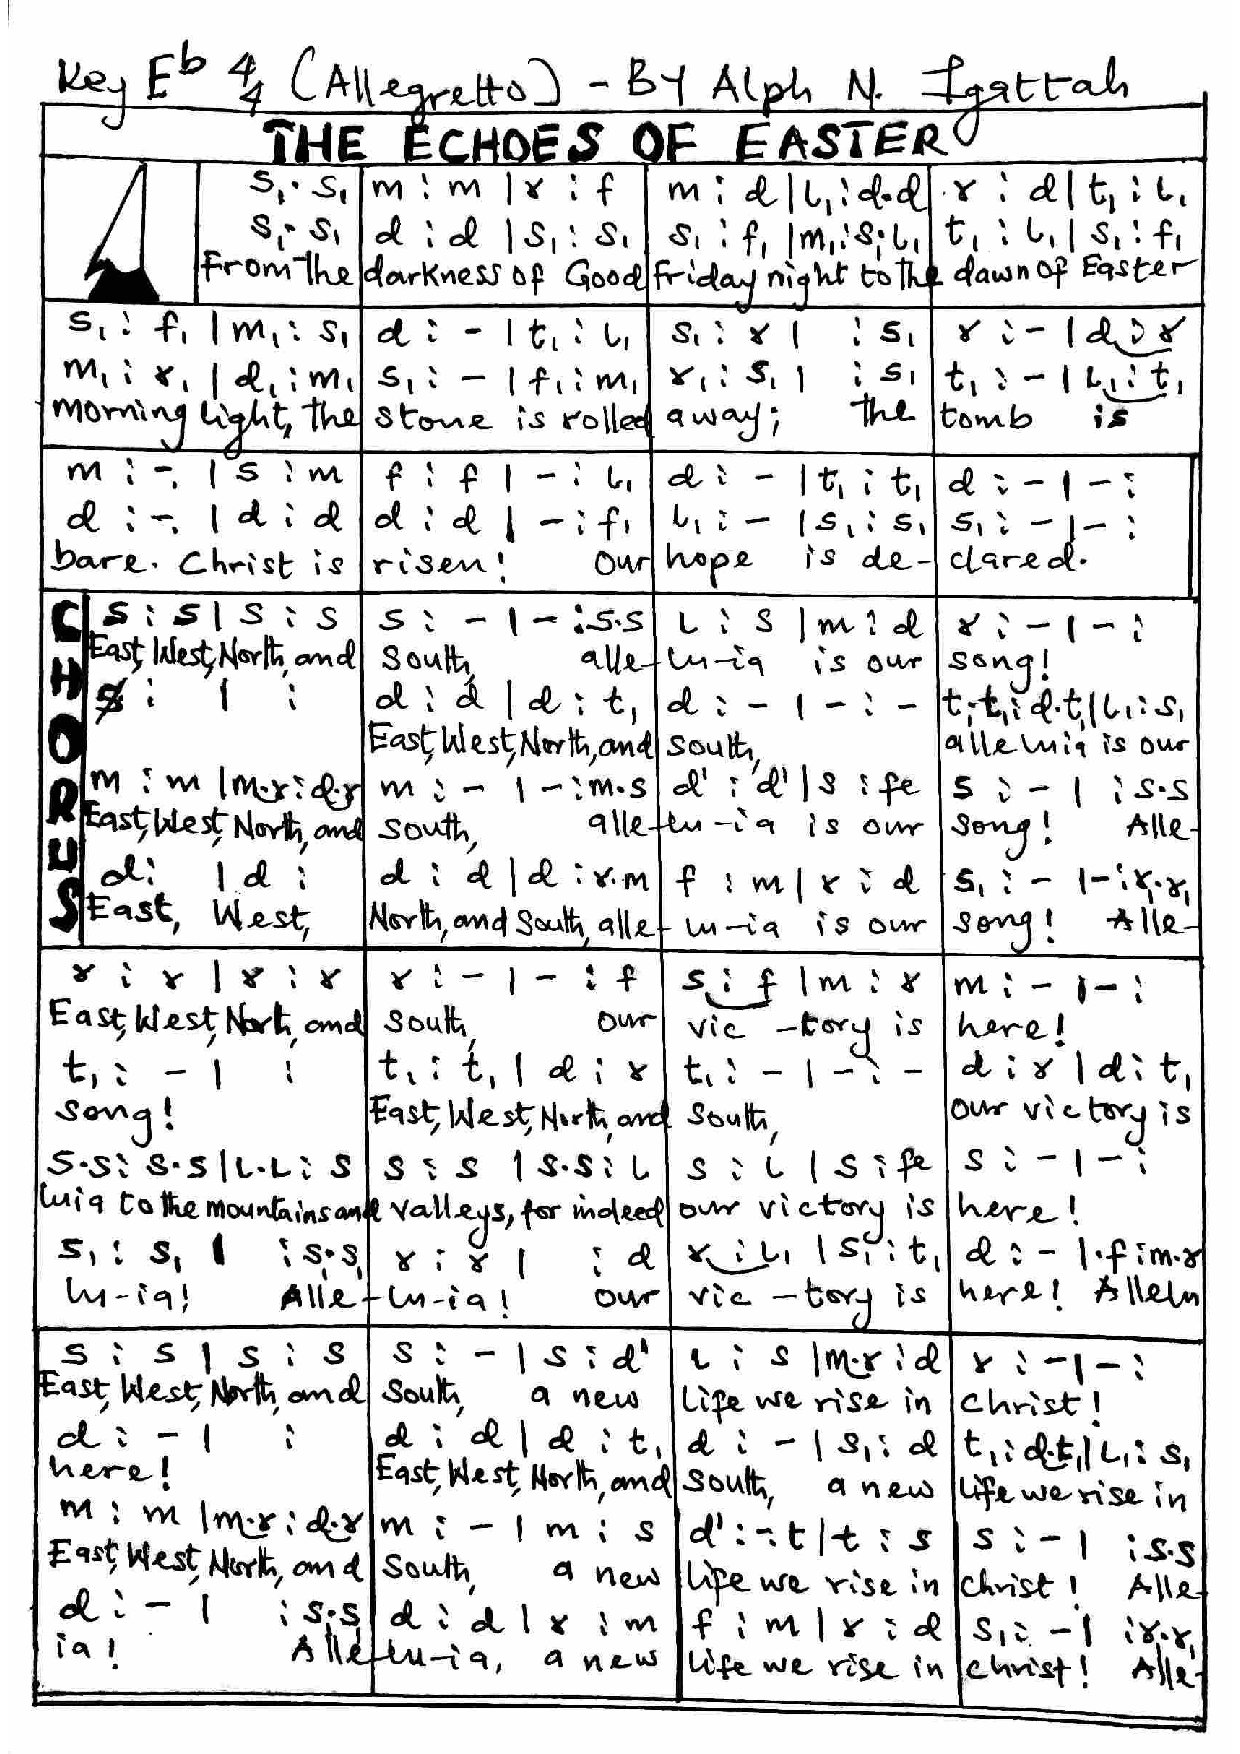 Key Eb 4/4 (Allegretto) - BY Alph N. Igattah
THE ECHOES OF EASTER
s₁. s₁ | m : m | r : f | m : d | l₁ : d.d | r : d | t₁ : l₁
s₁. s₁ | d : d | s₁ : s₁ | s₁ : f₁ | m₁ : s₁.l₁ | t₁ : l₁ | s₁ : f₁
From the darkness of Good Friday night to the dawn of Easter
s₁ : f₁ | m₁ : s₁ | d : - | t₁ : l₁ | s₁ : r | : s₁ | r : - | d : r
m₁ : r₁ | d₁ : m₁ | s₁ : - | f₁ : m₁ | r₁ : s₁ | : s₁ | t₁ : - | l₁ : t₁
morning light, the stone is rolled away; the tomb is
m : -. | s : m | f : f | - : l₁ | d : - | t₁ : t₁ | d : - | - :
d : -. | d : d | d : d | - : f₁ | l₁ : - | s₁ : s₁ | s₁ : - | - :
bare. Christ is risen! Our hope is de- clared.
CHORUS
s : s | s : s | s : - | - : s.s | l : s | m : d | r : - | - :
East, West, North, and South, alle-lu-ia is our song!
: | : | d : d | d : t₁ | d : - | - : - | t₁.t₁ : d.t₁ | l₁ : s₁
East, West, North, and South, alleluia is our
m : m | m.r : d.r | m : - | - : m.s | d' : d' | s : fe | s : - | : s.s
East, West, North, and South, alle-lu-ia is our song! Alle-
d : | d : | d : d | d : r.m | f : m | r : d | s₁ : - | - : r₁.r₁
East, West, North, and South, alle-lu-ia is our song! Alle-
r : r | r : r | r : - | - : f | s : f | m : r | m : - | - :
East, West, North, and South, our vic-tory is here!
t₁ : - | : | t₁ : t₁ | d : r | t₁ : - | - : - | d : r | d : t₁
song! East, West, North, and South, our victory is
s.s : s.s | l.l : s | s : s | s.s : l | s : l | s : fe | s : - | - :
luia to the mountains and valleys, for indeed our victory is here!
s₁ : s₁ | : s₁.s₁ | r : r | : d | r : l₁ | s₁ : t₁ | d : - | .f : m.r
lu-ia! Alle-lu-ia! our vic-tory is here! Allelu
s : s | s : s | s : - | s : d' | l : s | m.r : d | r : - | - :
East, West, North, and South, a new life we rise in Christ!
d : - | : | d : d | d : t₁ | d : - | s₁ : d | t₁ : d.t₁ | l₁ : s₁
here! East, West, North, and South, a new life we rise in
m : m | m.r : d.r | m : - | m : s | d' : -.t | t : s | s : - | : s.s
East, West, North, and South, a new life we rise in Christ! Alle-
d : - | : s₁.s₁ | d : d | r : m | f : m | r : d | s₁ : - | : r₁.r₁
ia! Alle-lu-ia, a new life we rise in christ! Alle-